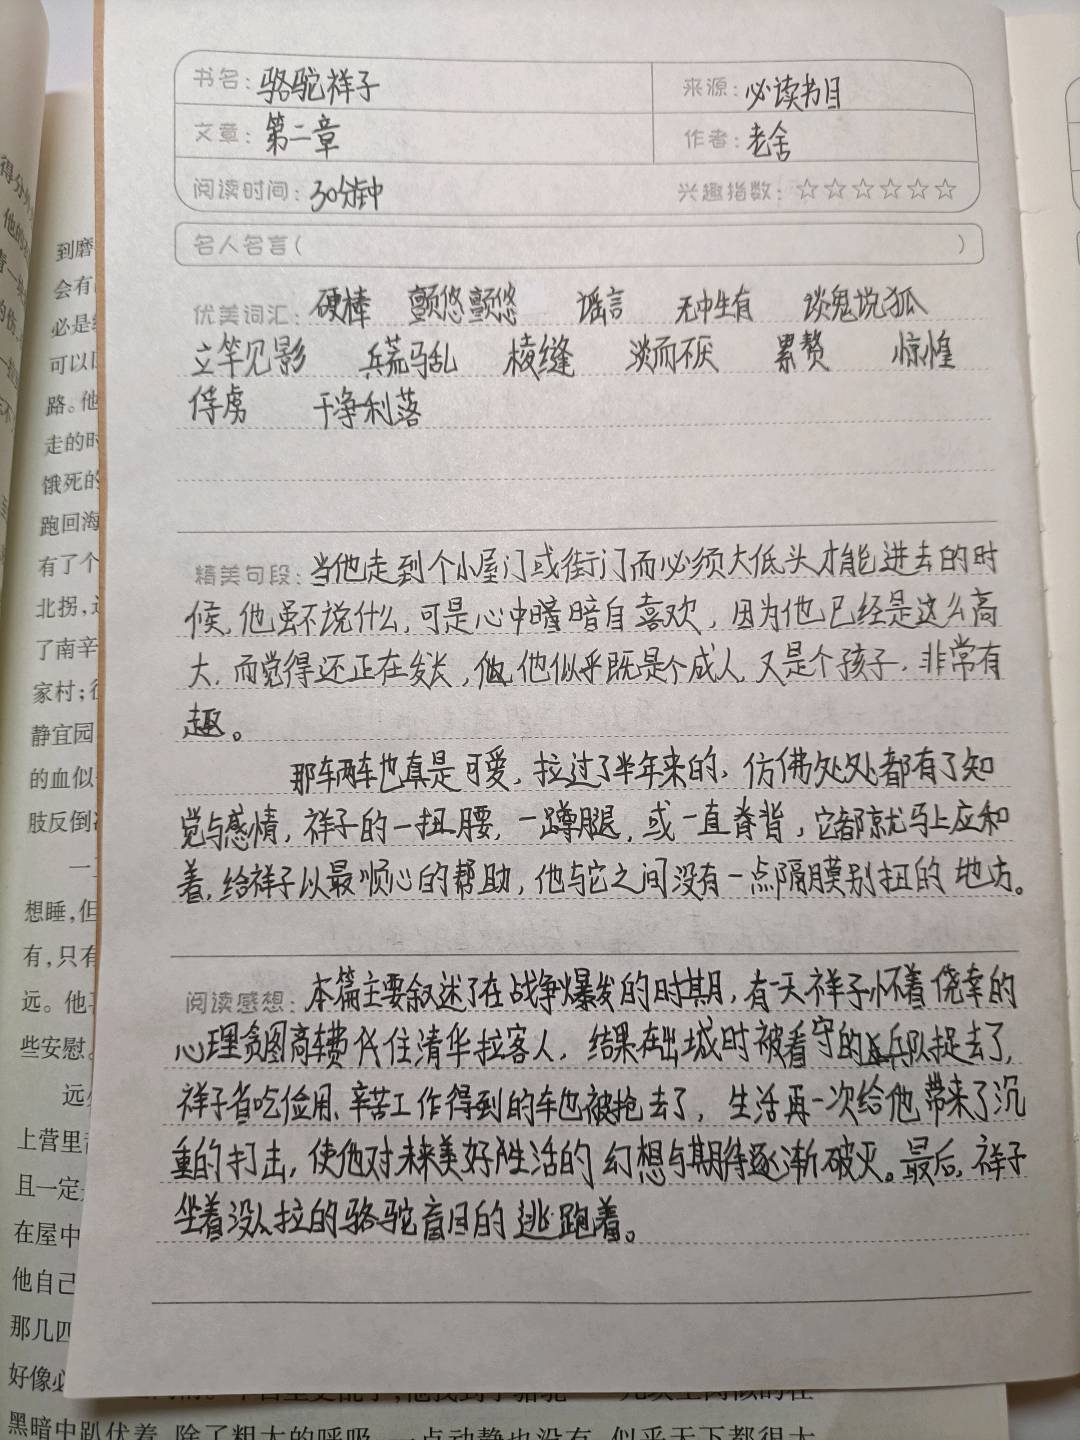 书名：骆驼祥子 来源：必读书目
文章：第二章 作者：老舍
阅读时间：30分钟 兴趣指数：☆☆☆☆☆☆
名人名言（ ）
优美词汇：硬棒 颤悠颤悠 谣言 无中生有 谈鬼说狐
立竿见影 兵荒马乱 棱缝 淡而不厌 累赘 惊惶
俘虏 干净利落
精美句段：当他走到个小屋门或街门而必须大低头才能进去的时
候，他虽不说什么，可是心中暗暗自喜欢，因为他已经是这么高
大，而觉得还正在发长，他似乎既是个成人，又是个孩子，非常有
趣。
那车两车也真是可爱，拉过了半年来的，仿佛处处都有了知
觉与感情，祥子的一扭腰，一蹲腿，或一直脊背，它都就马上应和
着，给祥子以最顺心的帮助，他与它之间没有一点隔膜别扭的地方。
阅读感想：本篇主要叙述了在战争爆发的时期，有一天祥子怀着侥幸的
心理贪图高车费代住清华拉客人，结果在出城时被看守的兵队捉去了，
祥子省吃俭用、辛苦工作得到的车也被抢去了，生活再一次给他带来了沉
重的打击，使他对未来美好生活的幻想与期待逐渐破灭。最后，祥子
坐着没人拉的骆驼盲目的逃跑着。
到磨
会有
必是
可以
路。他
走的时
饿死的
跑回海
有了个
北拐，
了南辛
家村；
静宜园
的血似
肢反倒
想睡，但
有，只有
远。他
些安慰。
远
上营里
且一定
在屋中
他自己
那几匹
好像必
黑暗中趴伏着，除了粗大的呼吸，一点动静也没有，似乎天下都很太